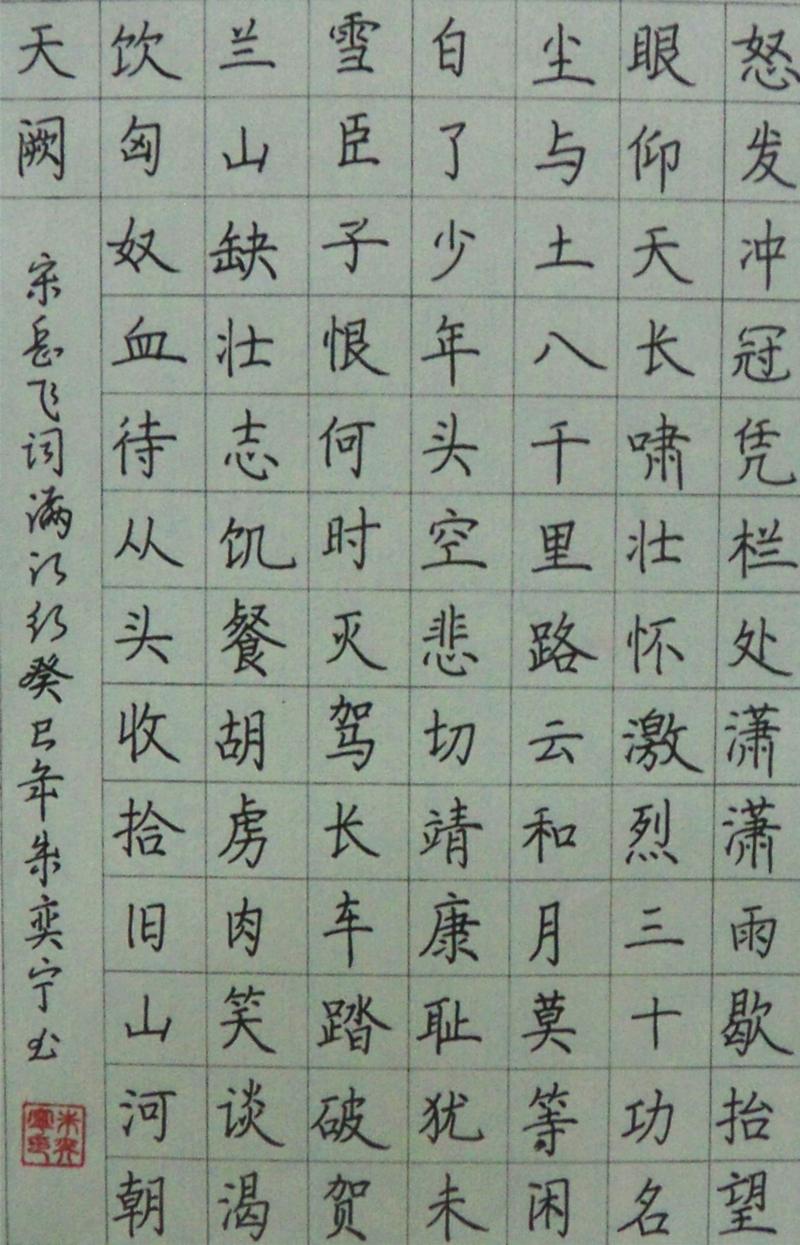 怒发冲冠凭栏处潇潇雨歇抬望
眼仰天长啸壮怀激烈三十功名
尘与土八千里路云和月莫等闲
白了少年头空悲切靖康耻犹未
雪臣子恨何时灭驾长车踏破贺
兰山缺壮志饥餐胡虏肉笑谈渴
饮匈奴血待从头收拾旧山河朝
天阙
宋岳飞词满江红癸巳年朱奕宁书